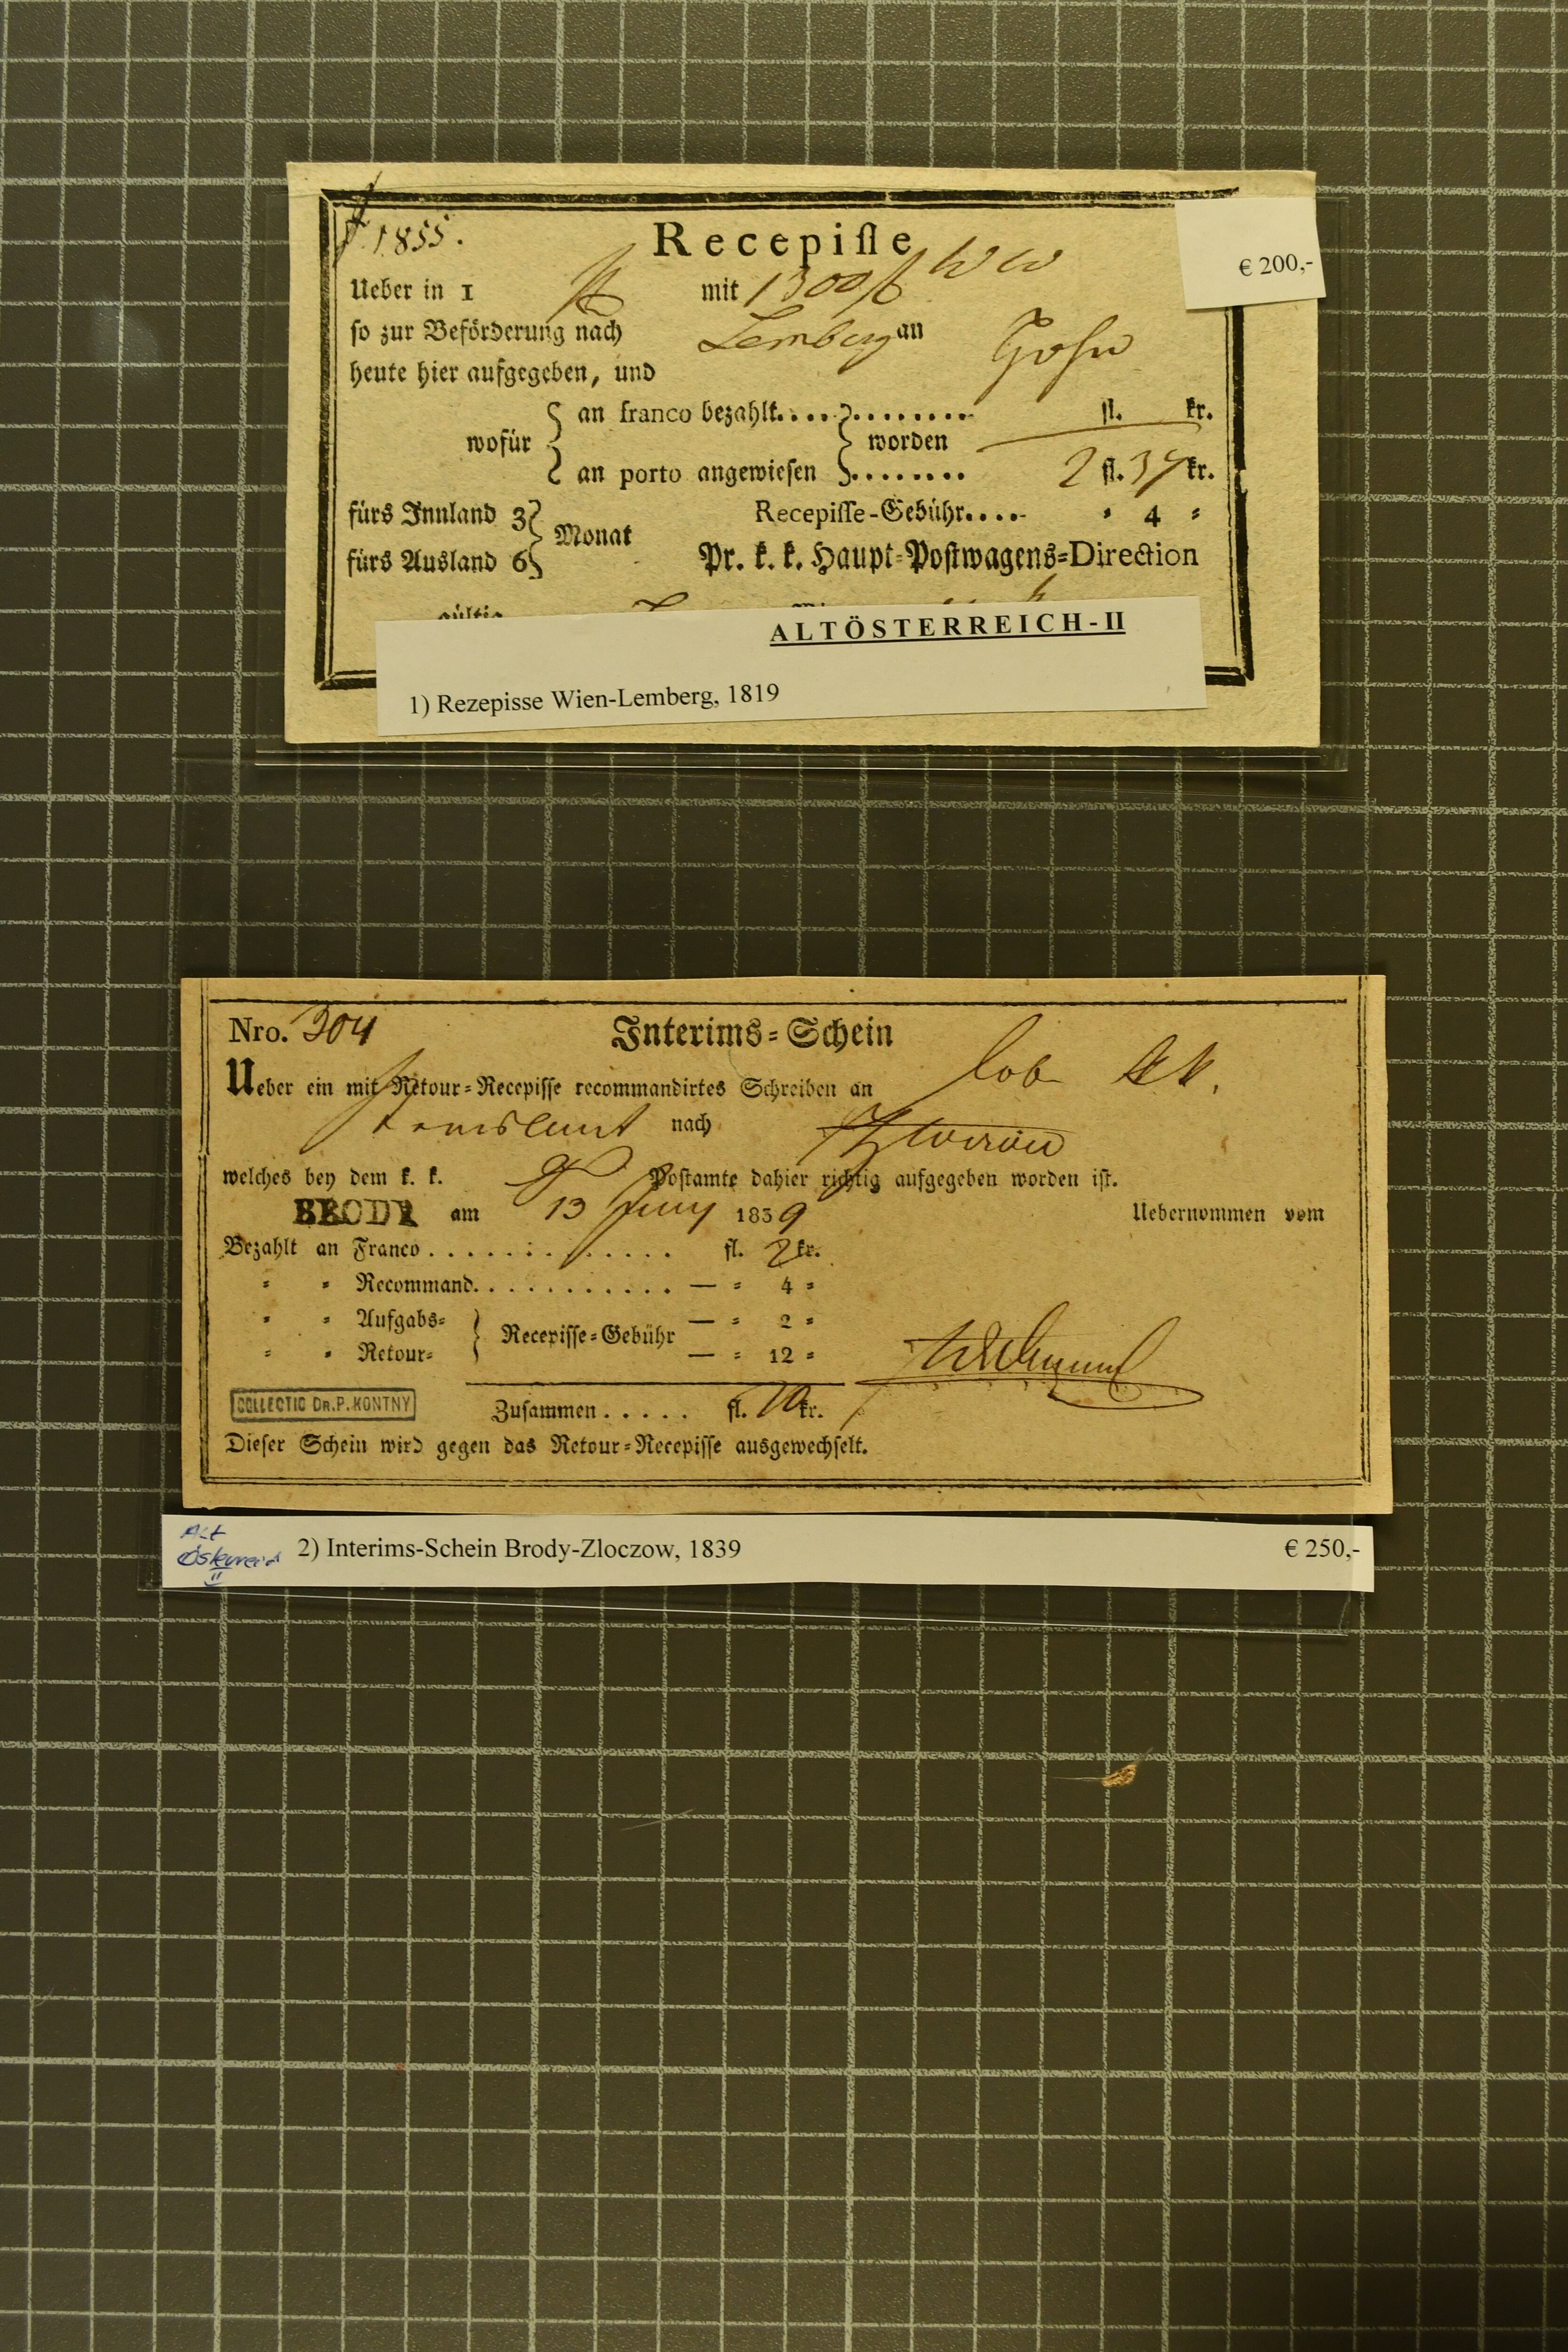 1855.
Recepisse
€ 200,-
Ueber in 1 mit 1300 f W W
so zur Beförderung nach Lemberg an
heute hier aufgegeben, und
an franco bezahlt............. fl. kr.
wofür worden
an porto angewiesen ........ 2 fl. 37 kr.
fürs Innland 3
Recepisse-Gebühr.... " 4 "
Monat
fürs Ausland 6
Pr. k. k. Haupt-Postwagens-Direction
gültig
ALTÖSTERREICH-II
1) Rezepisse Wien-Lemberg, 1819
Nro. 304 Interims-Schein
Ueber ein mit Retour-Recepisse recommandirtes Schreiben an lob kk.
nach
welches bey dem k. k. Postamte dahier richtig aufgegeben worden ist.
BRODY am 13 Juny 1839 Uebernommen vom
Bezahlt an Franco . . . . . . . . . . . . . fl. 2 kr.
" " Recommand. . . . . . . . . . . . — " 4 "
" " Aufgabs- — " 2 "
Recepisse-Gebühr
" " Retour- — " 12 "
COLLECTIO DR.P.KONTNY
Zusammen . . . . . fl. kr.
Dieser Schein wird gegen das Retour-Recepisse ausgewechselt.
Alt
Österreich
II
2) Interims-Schein Brody-Zloczow, 1839 € 250,-